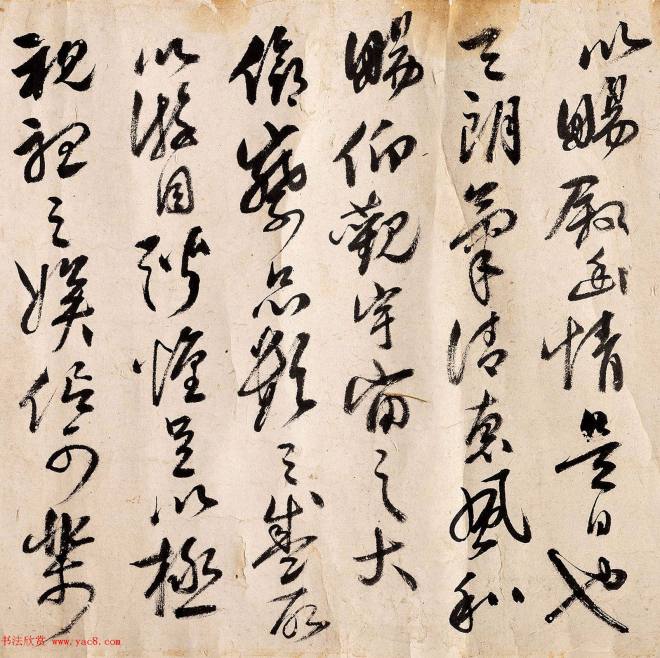 以暢敘幽情是日也
天朗氣清惠風和
暢仰觀宇宙之大
俯察品類之盛所
以遊目騁懷足以極
視聽之娛信可樂
书法欣赏 www.yac8.com